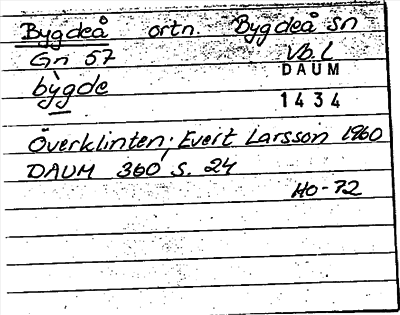 Bygdeå ortn. Bygdeå sn
Gri 57 Vb. L
DAUM
bygde
1434
Överklinten; Evert Larsson 1960
DAUM 360 s. 24
HO-72